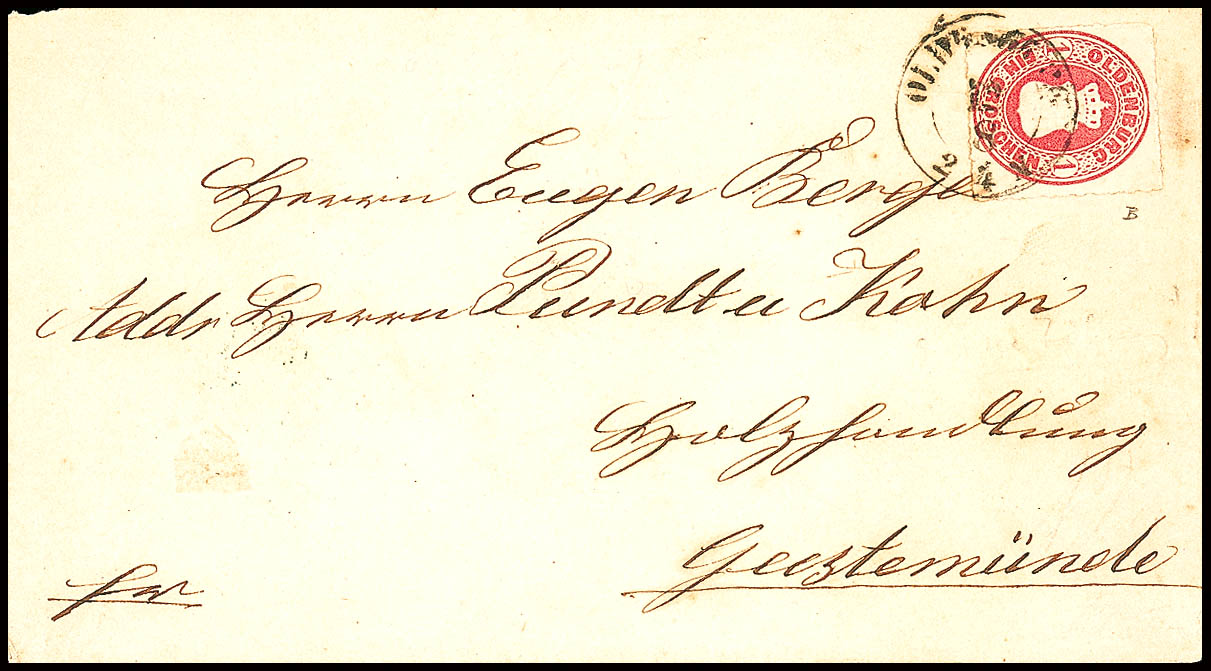 OLDENBURG
1
EIN GROSCHEN
1
2/4
B
Herrn Eugen Berge
Addr Herrn Pundt u Kohn
Holzhandlung
Geestemünde
fr